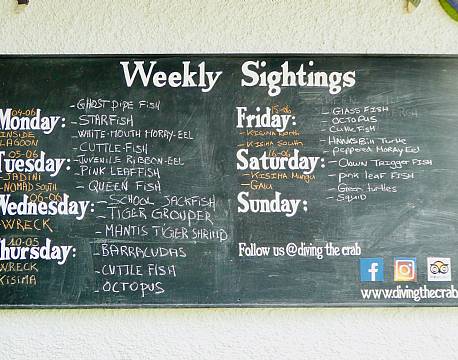 Weekly Sightings
Monday:
04-06
INSIDE
LAGOON
- GHOST PIPE FISH
- STARFISH
- WHITE-MOUTH MORAY-EEL
- CUTTLE-FISH
Tuesday:
05-06
- JADINI
- NOMAD SOUTH
- JUVENILE RIBBON-EEL
- PINK LEAFFISH
- QUEEN FISH
Wednesday:
06-06
- WRECK
- SCHOOL JACKFISH
- TIGER GROUPER
- MANTIS TIGER SHRIMP
Thursday:
10-05
WRECK
KISIMA
- BARRACUDAS
- CUTTLE FISH
- OCTOPUS
Friday:
15-06
- KISIMA NORTH
- KISIMA SOUTH
- GLASS FISH
OCTOPUS
CuttleFISH
- HAWKSBill Turtle
- Peppered MORAY-Eel
Saturday:
16-06
- KISIMA Mungu
- GALU
- Clown Trigger FISH
- pink leaf FISH
- Green turtles
- SQUID
Sunday:
Follow us @ diving the crab
www.divingthecrab